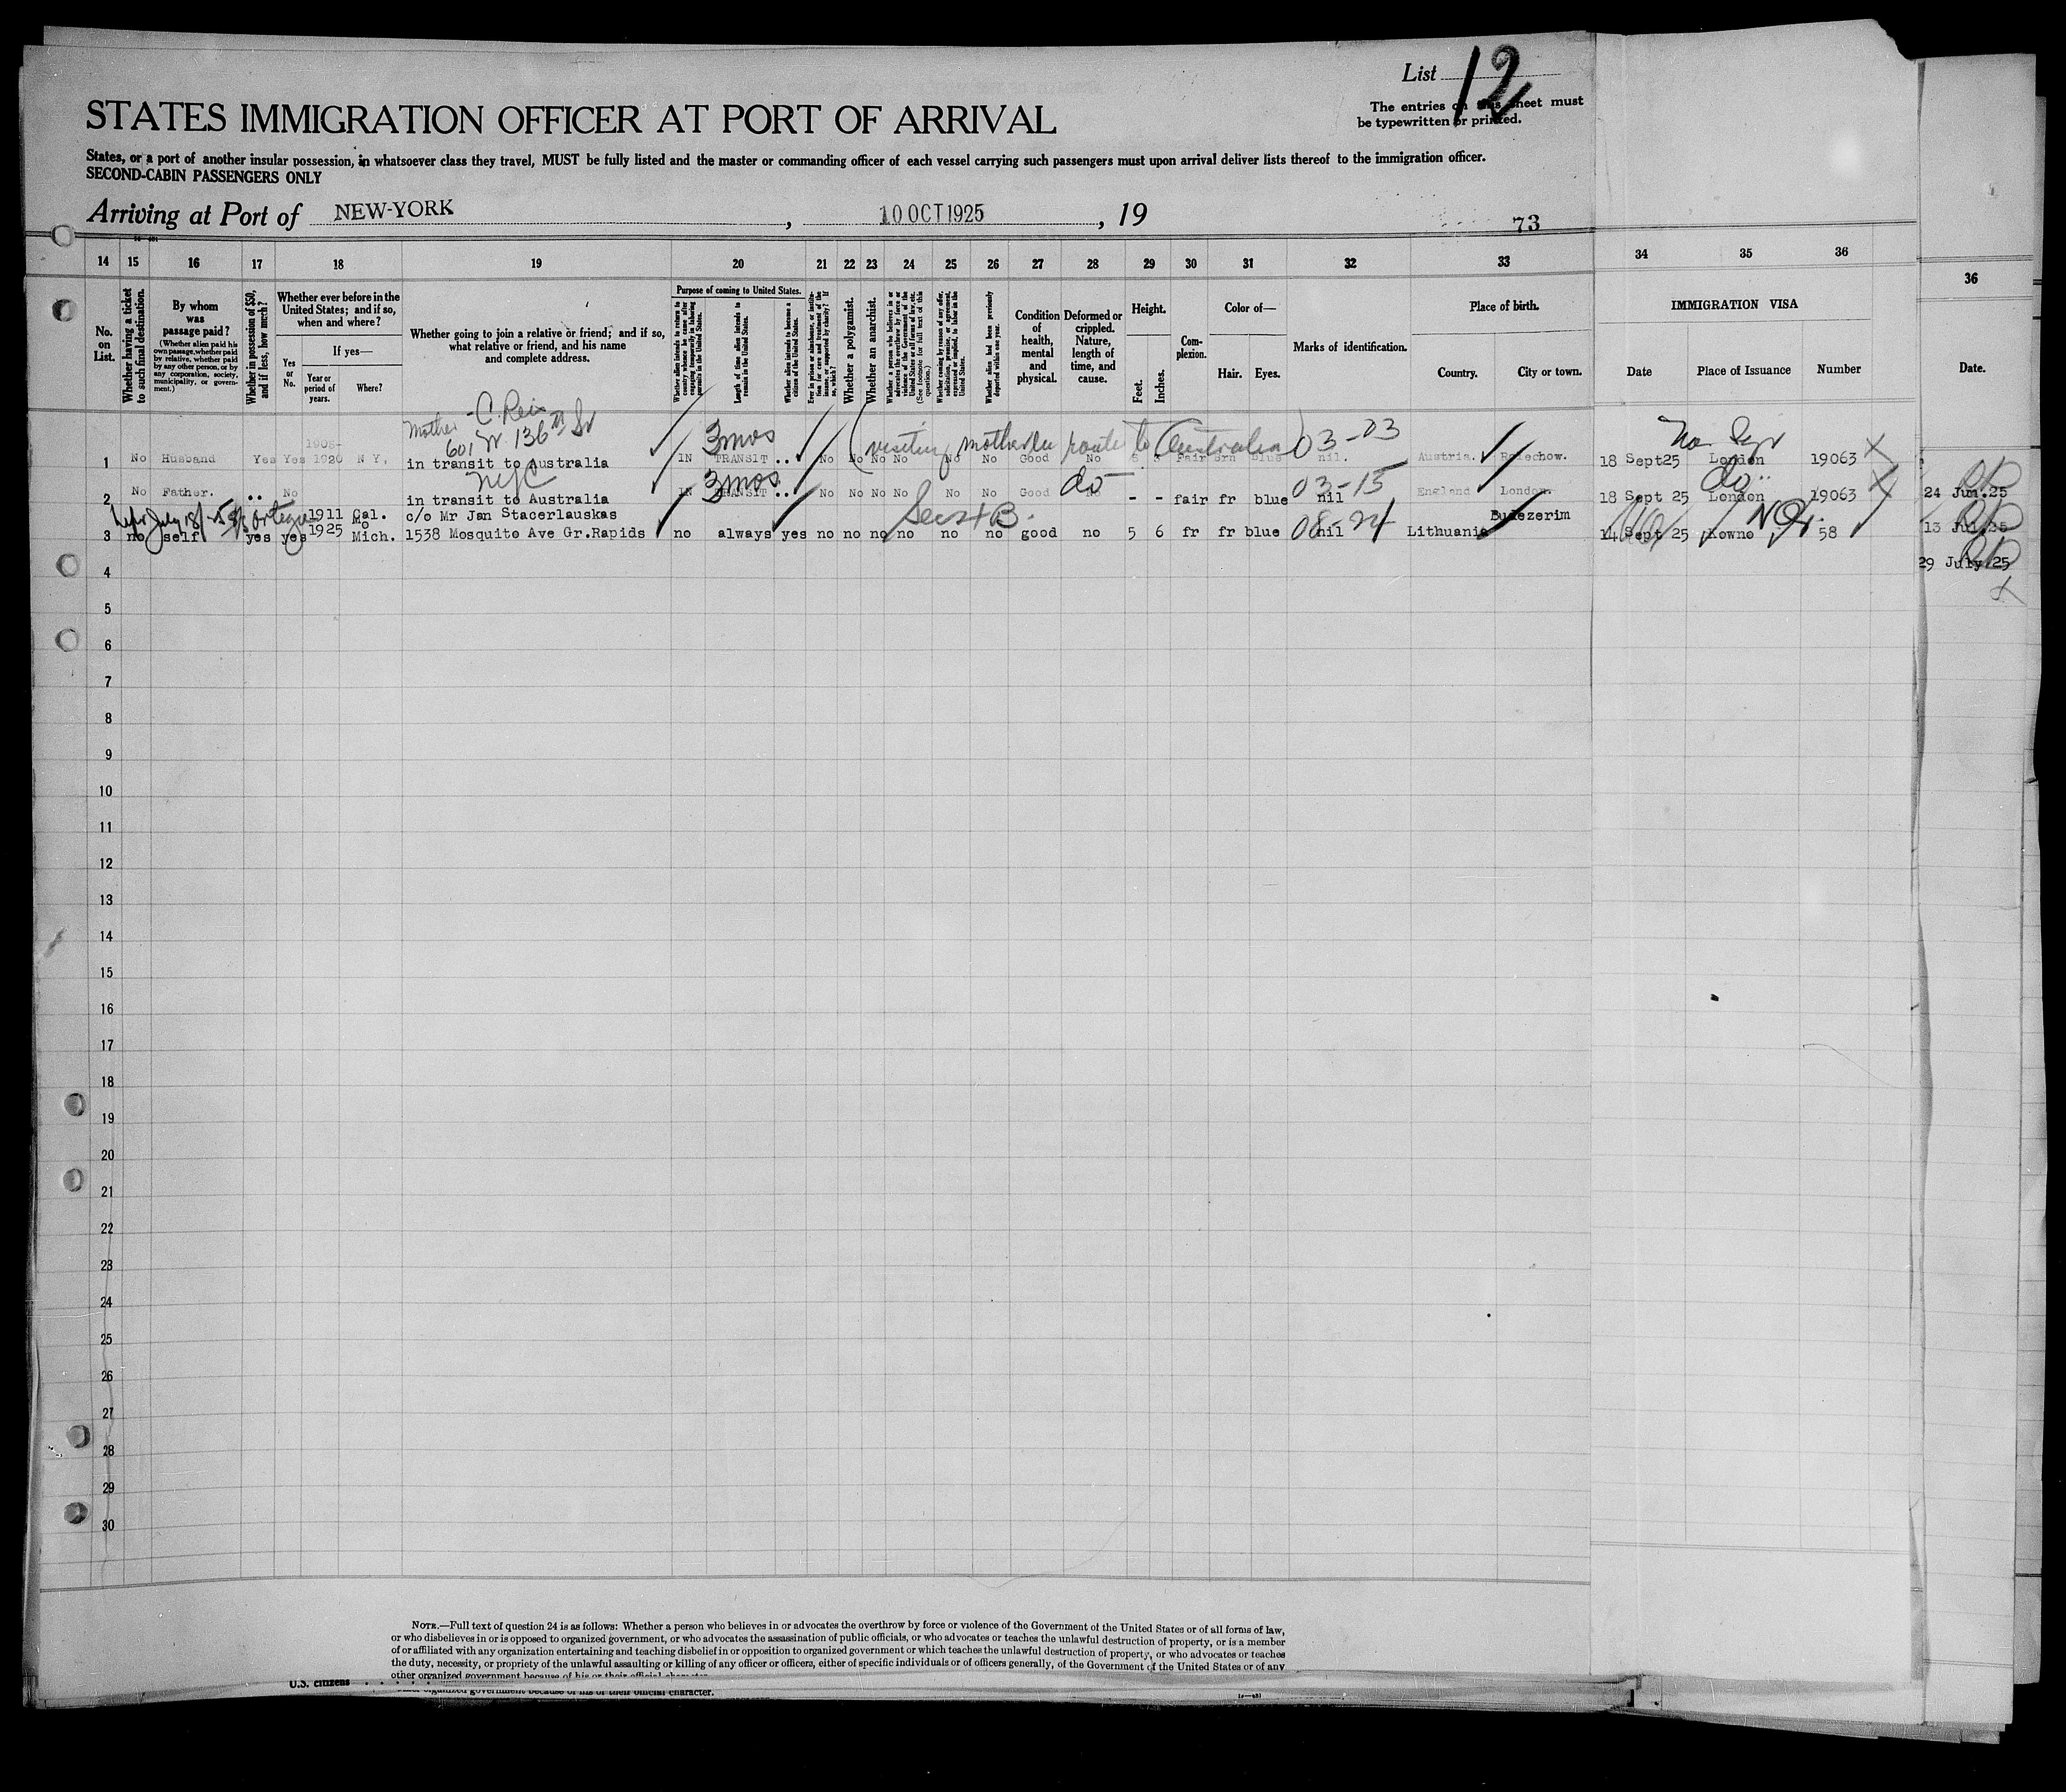 List 12
The entries on this sheet must
be typewritten or printed.
STATES IMMIGRATION OFFICER AT PORT OF ARRIVAL
States, or a port of another insular possession, in whatsoever class they travel, MUST be fully listed and the master or commanding officer of each vessel carrying such passengers must upon arrival deliver lists thereof to the immigration officer.
SECOND-CABIN PASSENGERS ONLY
Arriving at Port of NEW-YORK , 10 OCT 1925 , 19
73
14 15 16 17 18 19 20 21 22 23 24 25 26 27 28 29 30 31 32 33 34 35 36
36
No. on List.
Whether having a ticket to such final destination.
By whom was passage paid?
(Whether alien paid his own passage, whether paid by relative, whether paid by any other person, or by any corporation, society, municipality, or government.)
Whether in possession of $50, and if less, how much?
Whether ever before in the United States; and if so, when and where?
Yes or No.
If yes—
Year or period of years.
Where?
Whether going to join a relative or friend; and if so, what relative or friend, and his name and complete address.
Purpose of coming to United States.
Length of time alien intends to remain in the United States.
Whether alien intends to become a citizen of the United States.
Whether a polygamist.
Whether an anarchist.
Condition of health, mental and physical.
Deformed or crippled. Nature, length of time, and cause.
Height.
Feet. Inches.
Complexion.
Color of—
Hair. Eyes.
Marks of identification.
Place of birth.
Country. City or town.
IMMIGRATION VISA
Date Place of Issuance Number
Date.
Mother - C. Reis
601 W 136th St
3mos (visiting mother en route to Australia) 03-03
1 No Husband Yes Yes 1920 N Y, in transit to Australia IN TRANSIT .. No No No No No No Good No fair brn blue nil. Austria. 18 Sept25 London 19063 X
NYC 3mos do 03-15 do
2 No Father. .. No in transit to Australia IN TRANSIT .. No No No No No No Good No - - fair fr blue nil England London. 18 Sept 25 London 19063 X
24 Jun.25
1911 Cal. c/o Mr Jan Stacerlauskas
3 no self yes yes 1925 Mich. 1538 Mosquito Ave Gr.Rapids no always yes no no no no no no good no 5 6 fr fr blue nil 08-24 Lithuania 14 Sept 25 Kowno 58
13 Jul.25
4
29 July 25
5
6
7
8
9
10
11
12
13
14
15
16
17
18
19
20
21
22
23
24
25
26
27
28
29
30
NOTE.—Full text of question 24 is as follows: Whether a person who believes in or advocates the overthrow by force or violence of the Government of the United States or of all forms of law,
or who disbelieves in or is opposed to organized government, or who advocates the assassination of public officials, or who advocates or teaches the unlawful destruction of property, or is a member
of or affiliated with any organization entertaining and teaching disbelief in or opposition to organized government or which teaches the unlawful destruction of property, or who advocates or teaches
the duty, necessity, or propriety of the unlawful assaulting or killing of any officer or officers, either of specific individuals or of officers generally, of the Government of the United States or of any
other organized government because of his or their official character.
U.S. citizens . . . . .
organized government because of his or their official character.